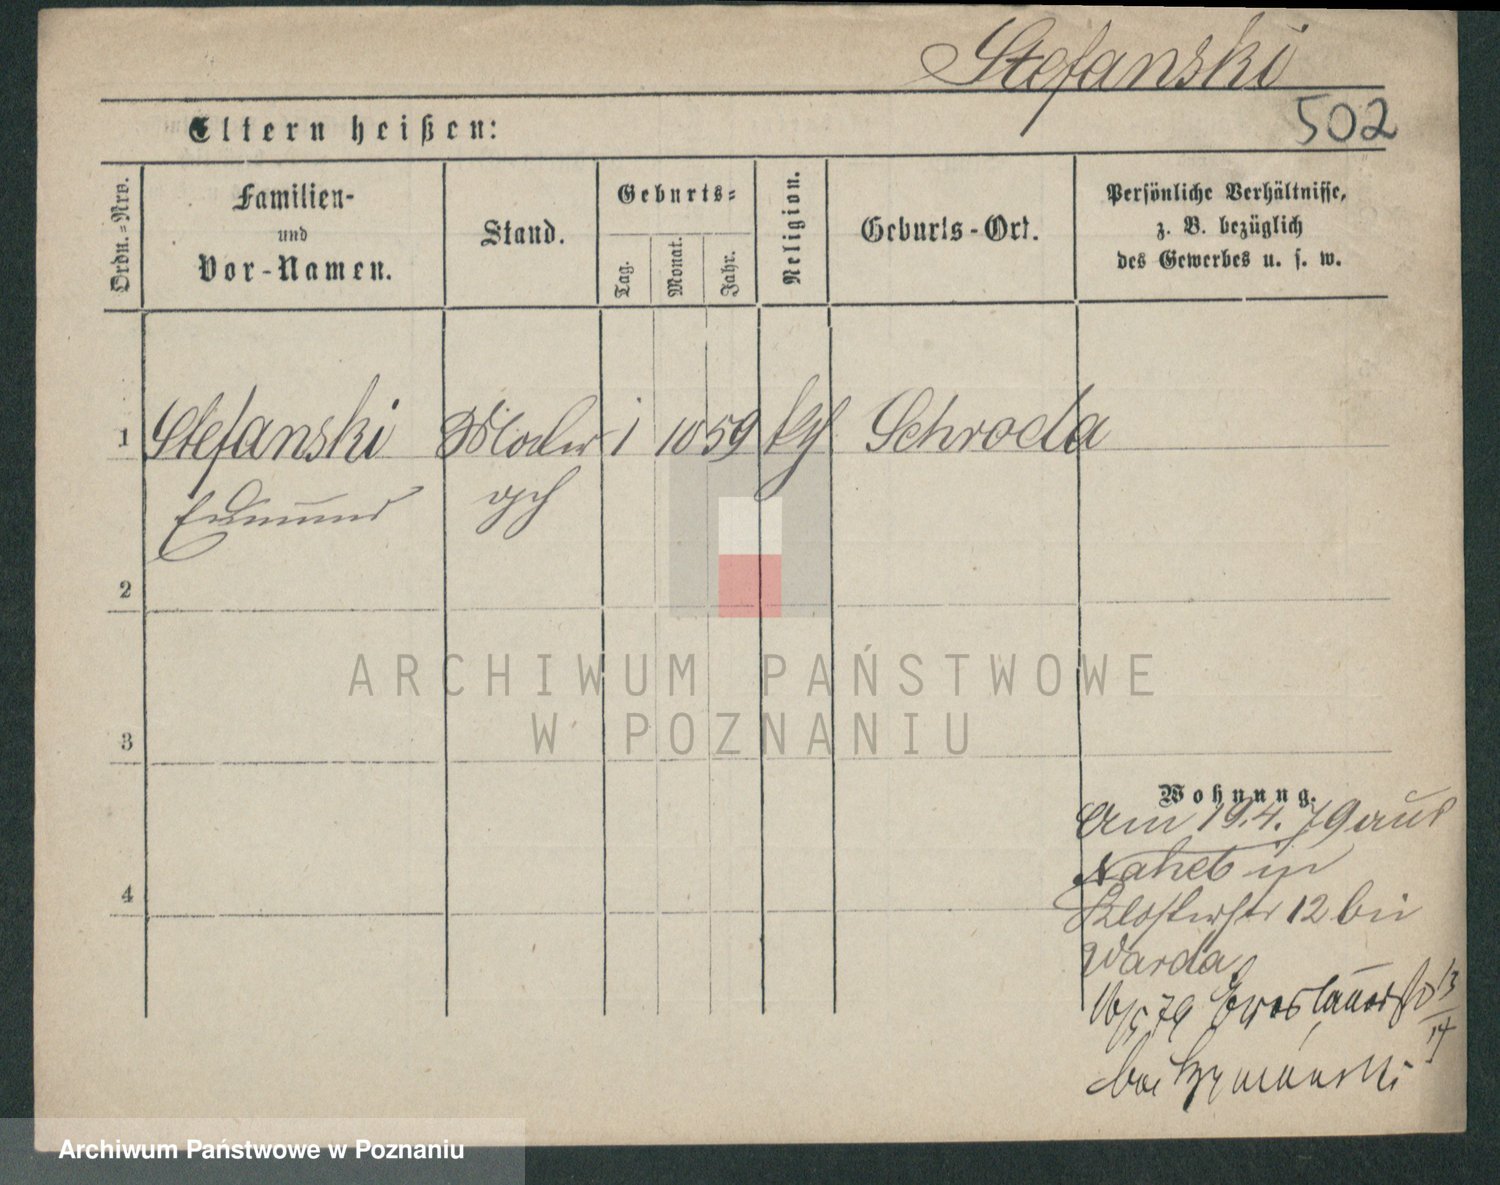 Stefanski
502
Eltern heißen:
Ordn.-Nro.
Familien-
und
Vor-Namen.
Stand.
Geburts-
Tag.
Monat.
Jahr.
Religion.
Geburts-Ort.
Persönliche Verhältnisse,
z. B. bezüglich
des Gewerbes u. s. w.
1 Stefanski 1 10 59 kth Schroda
Edmund
2
ARCHIWUM PAŃSTWOWE
W POZNANIU
3
Wohnung.
Am 19.4.79 aus
in
4
Klosterstr 12 bei
Warda.
79 13
14
bei Szymanski
Archiwum Państwowe w Poznaniu